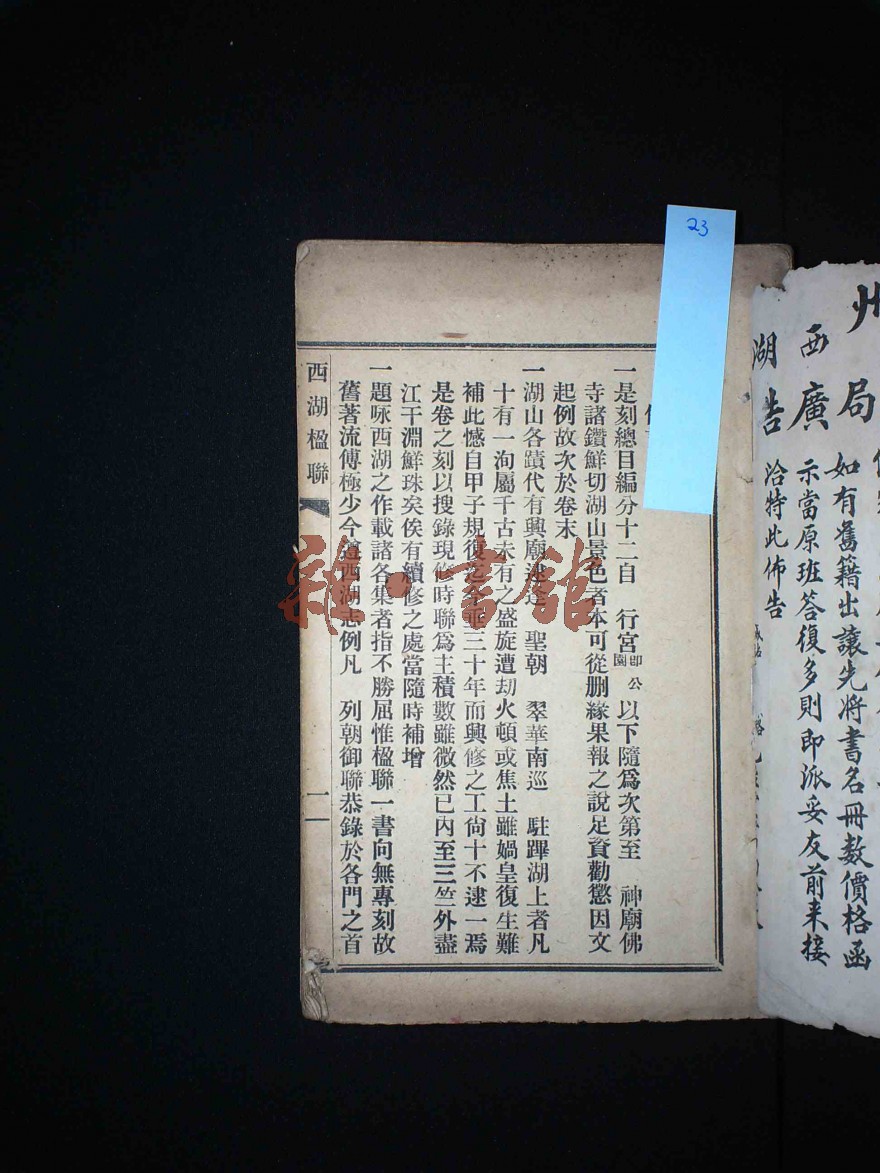 23
一是刻總目編分十二自　行宮即公園　以下隨爲次第至　神廟佛
寺諸鑽鮮切湖山景色者本可從删緣果報之說足資勸懲因文
起例故次於卷末
一湖山各蹟代有興廟逮逢　聖朝　翠華南巡　駐蹕湖上者凡
十有一洵屬千古未有之盛旋遭刧火頓或焦土雖媧皇復生難
補此憾自甲子規復迄今垂三十年而興修之工尙十不逮一焉
是卷之刻以搜錄現修時聯爲主積數雖微然已內至三竺外盡
江干淵鮮珠矣俟有續修之處當隨時補增
一題咏西湖之作載諸各集者指不勝屈惟楹聯一書向無專刻故
舊著流傳極少今遵西湖志例凡　列朝御聯恭錄於各門之首
西湖楹聯
一一
雜·書館
州
局
如有舊籍出讓先將書名冊數價格函
西廣
示當原班答復多則即派妥友前来接
湖告
洽特此佈告